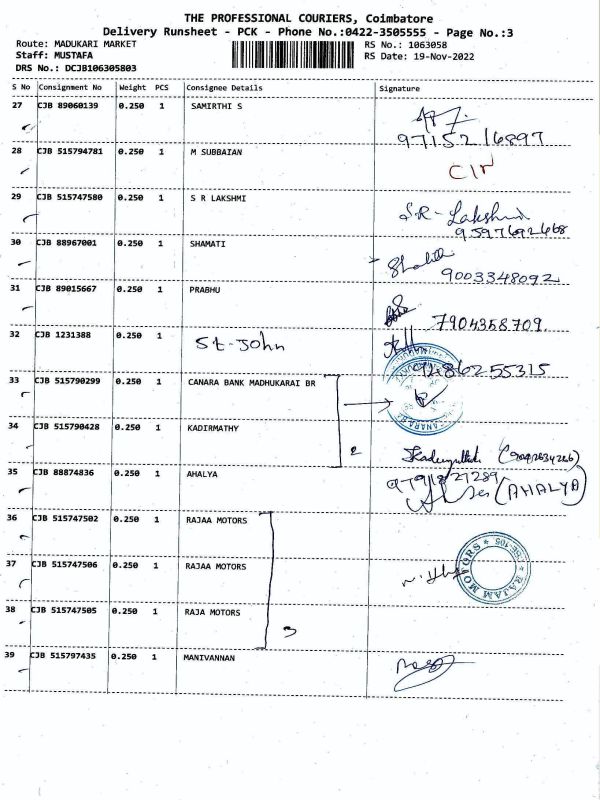 THE PROFESSIONAL COURIERS, Coimbatore
Delivery Runsheet - PCK - Phone No.:0422-3505555 - Page No.:3
Route: MADUKARI MARKET RS No.: 1063058
Staff: MUSTAFA RS Date: 19-Nov-2022
DRS No.: DCJB106305803
S No Consignment No Weight PCS Consignee Details Signature
27 CJB 89060139 0.250 1 SAMIRTHI S
97152 16897
28 CJB 515794781 0.250 1 M SUBBAIAN
29 CJB 515747580 0.250 1 S R LAKSHMI S.R- Lakshmi
9597692468
30 CJB 88967001 0.250 1 SHAMATI
9003348092
31 CJB 89015667 0.250 1 PRABHU
7904358709
32 CJB 1231388 0.250 1 St-John
33 CJB 515790299 0.250 1 CANARA BANK MADHUKARAI BR
34 CJB 515790428 0.250 1 KADIRMATHY
2
35 CJB 88874836 0.250 1 AHALYA
(AHALYA)
36 CJB 515747502 0.250 1 RAJAA MOTORS
37 CJB 515747506 0.250 1 RAJAA MOTORS
RAJAA MOTORS
38 CJB 515747505 0.250 1 RAJA MOTORS
3
39 CJB 515797435 0.250 1 MANIVANNAN